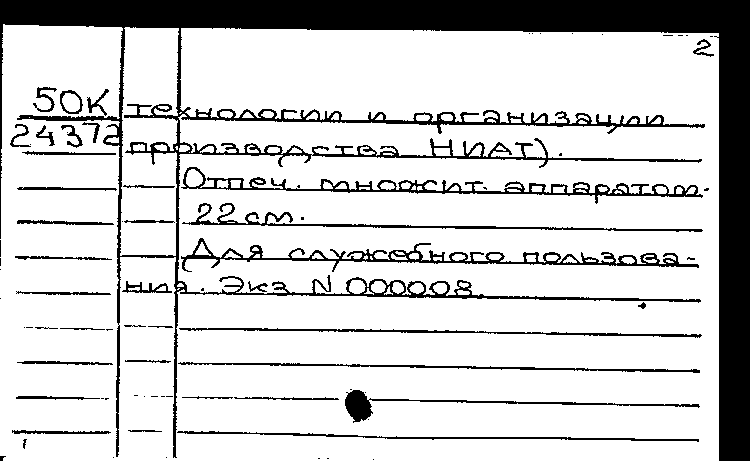 2
50К технологии и организации
24372 производства НИАТ).
Отпеч. множит. аппаратом.
22 см.
Для служебного пользова-
ния. Экз N 000008.